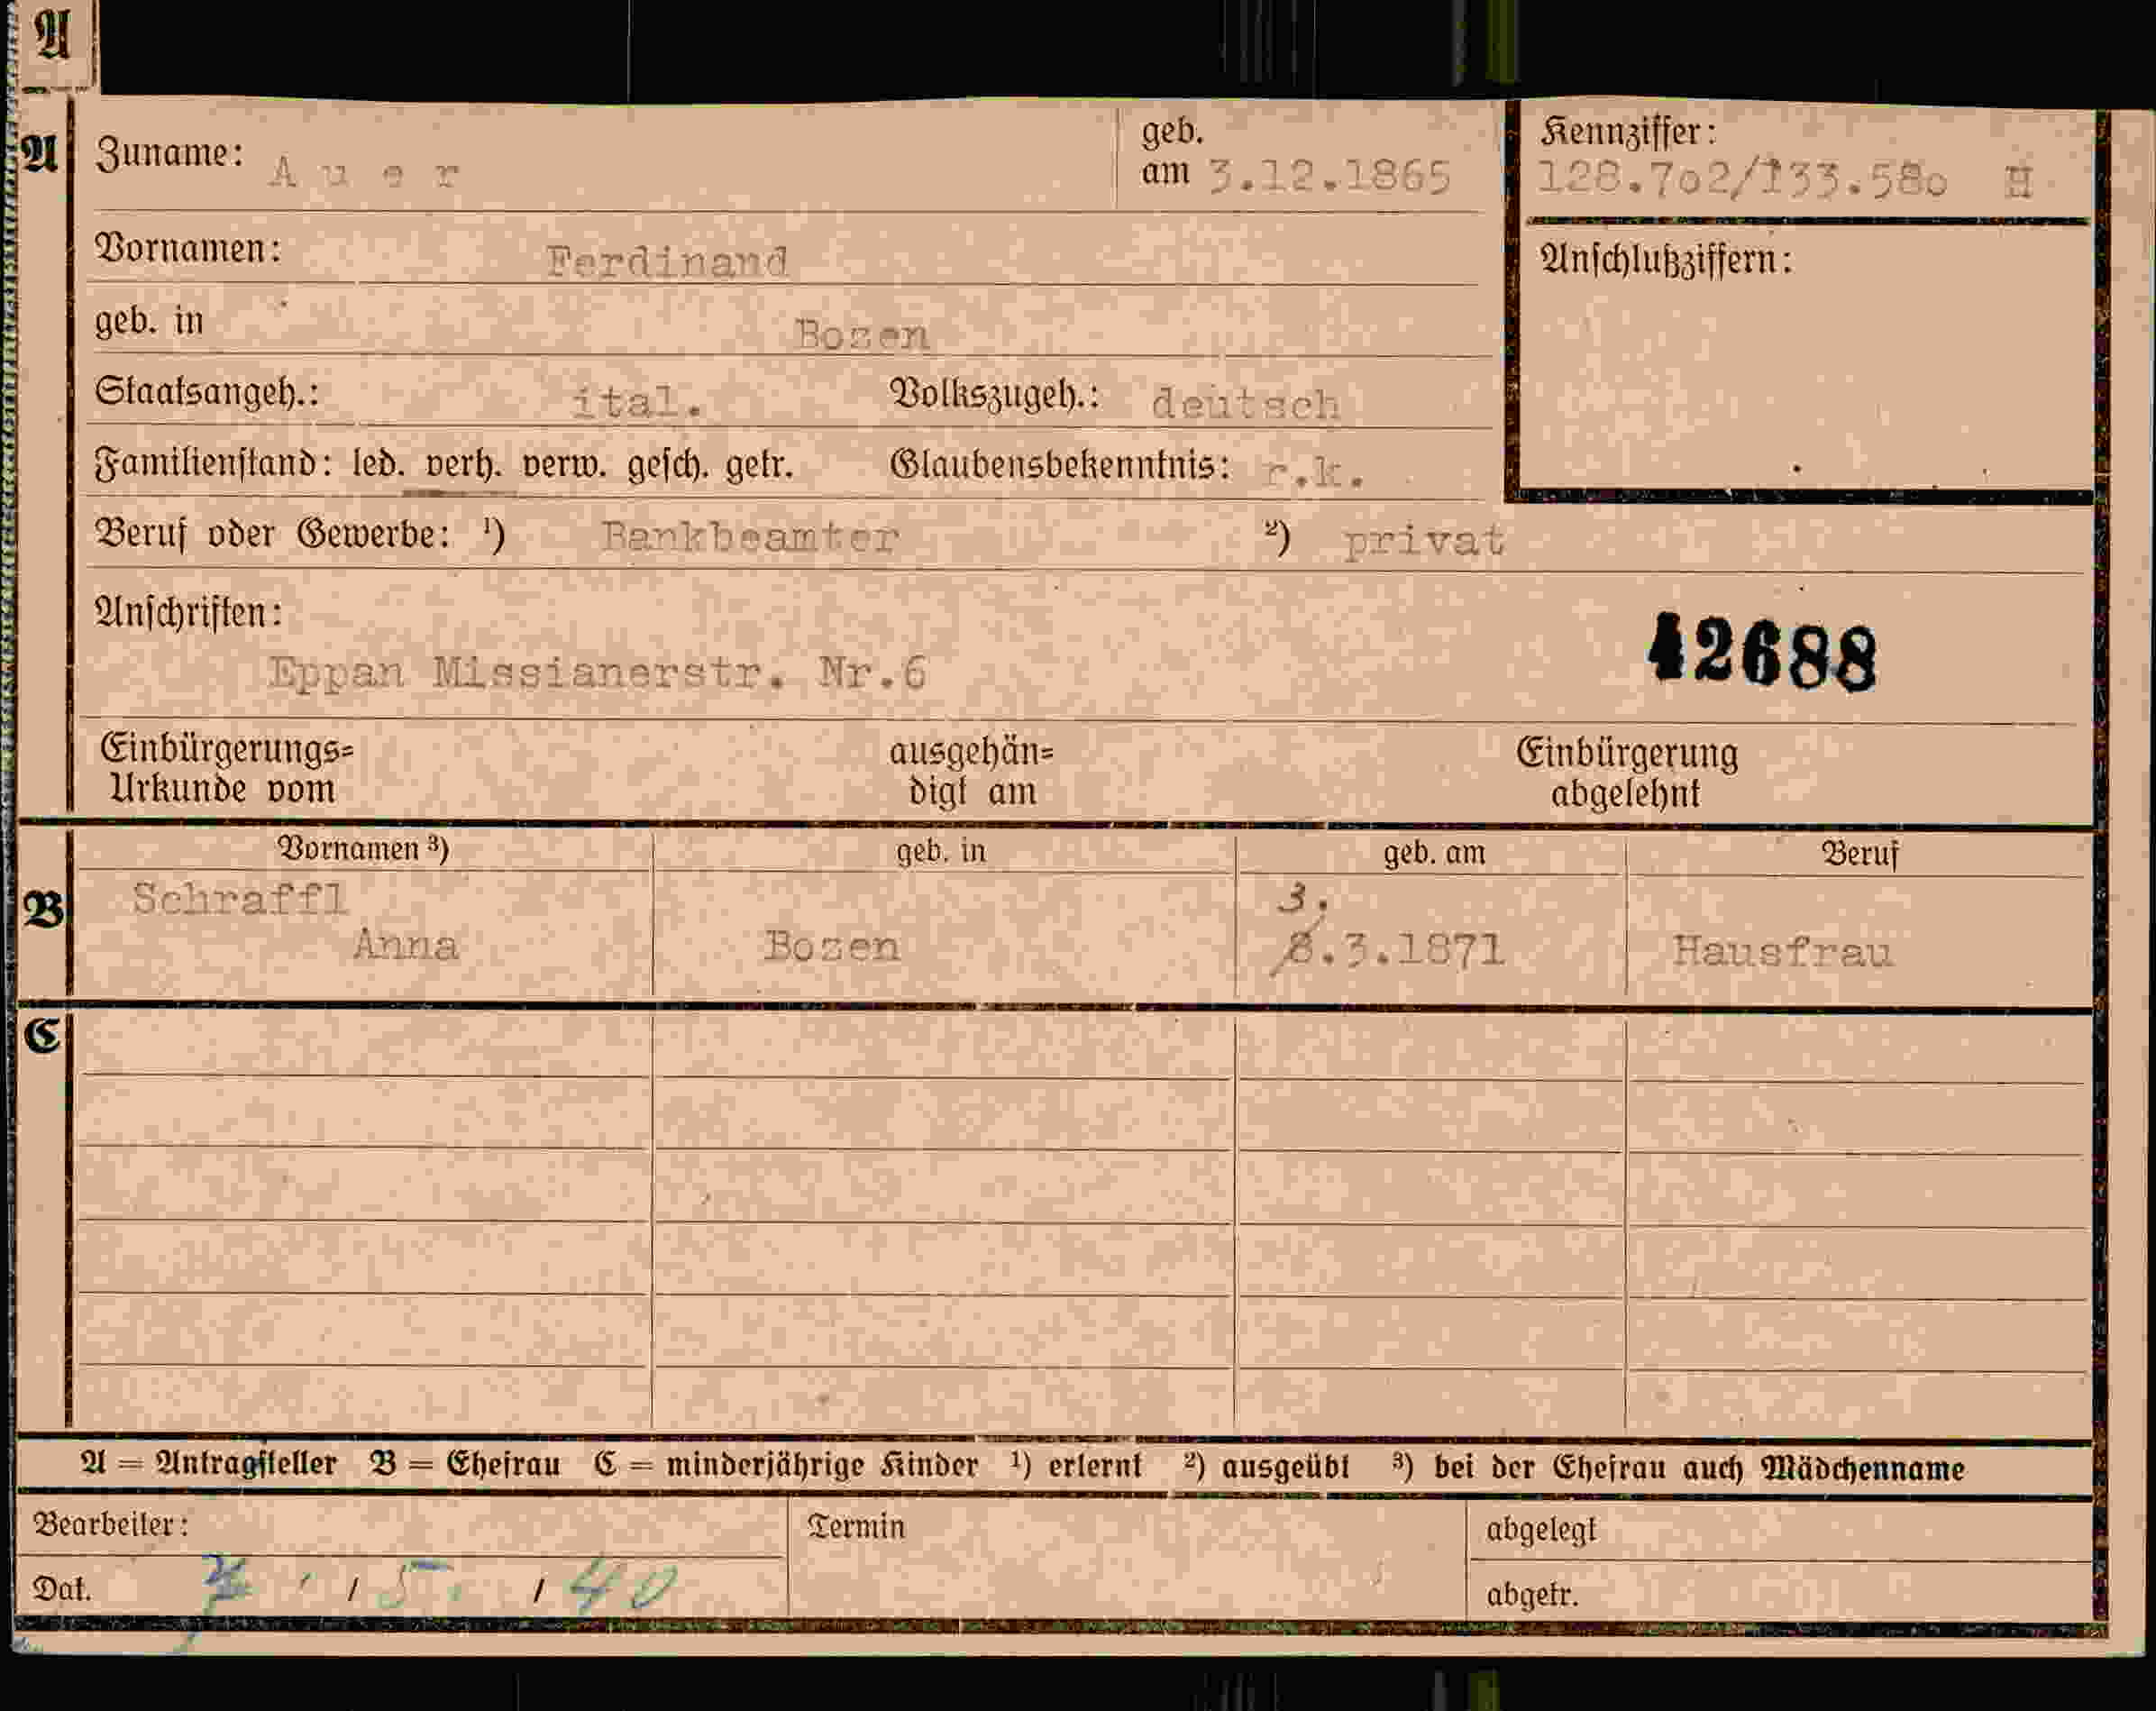 A
A Zuname: Auer geb. am 3.12.1865 Kennziffer: 128.7o2/133.58o H
Vornamen: Ferdinand Anschlußziffern:
geb. in Bozen
Staatsangeh.: ital. Volkszugeh.: deutsch
Familienstand: led. verh. verw. gesch. getr. Glaubensbekenntnis: r.k.
Beruf oder Gewerbe: ¹) Bankbeamter ²) privat
Anschriften:
Eppan Missianerstr. Nr.6 42688
Einbürgerungs= ausgehän= Einbürgerung
Urkunde vom digt am abgelehnt
Vornamen ³) geb. in geb. am Beruf
B Schraffl 3.
Anna Bozen 8.3.1871 Hausfrau
C
A = Antragsteller B = Ehefrau C = minderjährige Kinder ¹) erlernt ²) ausgeübt ³) bei der Ehefrau auch Mädchenname
Bearbeiter: Termin abgelegt
Dat. 7 / 5. / 40 abgetr.